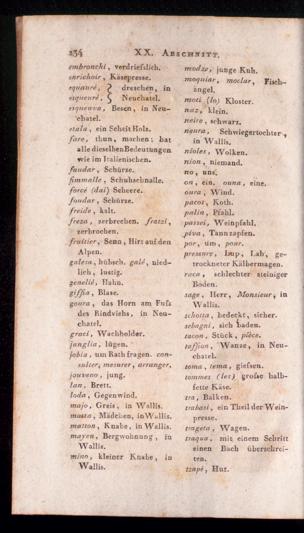 234 XX. Abschnitt.
embronchi, verdrieſslich.
enrichoir, Käsepresse.
equauré, } dreschen, in
esqueuré, } Neuchatel.
esqueuva, Besen, in Neu-
chatel.
etala, ein Scheit Holz.
fare, thun, machen; hat
alle dieselhen Bedeutungen
wie im Italienischen.
faudar, Schürze.
fimmalle, Schuhschnalle.
forcé (dai) Scheere.
foudar, Schürze.
freide, kalt.
freza, zerbrechen. fratzi,
zerbrochen.
fruitier, Senn, Hirt auf den
Alpen.
galesa, hübsch. galé, nied-
lich, lustig.
genelié, Hahn.
giffia, Blase.
goura, das Horn am Fuſs
des Rindviehs, in Neu-
chatel.
graci, Wachholder.
janglia, lügen.
jobia, um Rath fragen. con-
sulter, mesurer, arranger.
jouveno, jung.
lan, Brett.
loda, Gegenwind.
majo, Greis, in Wallis.
matta, Mädchen, in Wallis.
matton, Knabe, in Wallis.
mayen, Bergwohnung, in
Wallis.
mino, kleiner Knabe, in
Wallis.
modze, junge Kuh.
moquiar, moclar, Fisch-
angel.
moti (lo) Kloster.
naz, klein.
neire, schwarz.
neura, Schwiegertochter,
in Wallis.
nioles, Wolken.
nion, niemand.
no, uns.
on, ein. ouna, eine.
oura, Wind.
pacot, Koth.
palin, Pfahl.
passei, Weinpfahl.
péva, Tannzapfen.
por, um, pour.
presure, Lup, Lab, ge-
trockneter Kälbermagen.
roca, schlechter steiniger
Boden.
sage, Herr, Monsieur, in
Wallis.
schotta, bedeckt, sicher.
sebagni, sich baden.
tacon, Stück, pièce.
taffion, Wanze, in Neu-
chatel.
toma, tema, gieſsen.
tommes (les) groſse halb-
fette Käse.
tra, Balken.
trabasi, ein Theil der Wein-
presse.
trageta, Wagen.
traqua, mit einem Schritt
einen Bach überschrei-
ten.
tzapé, Hut.